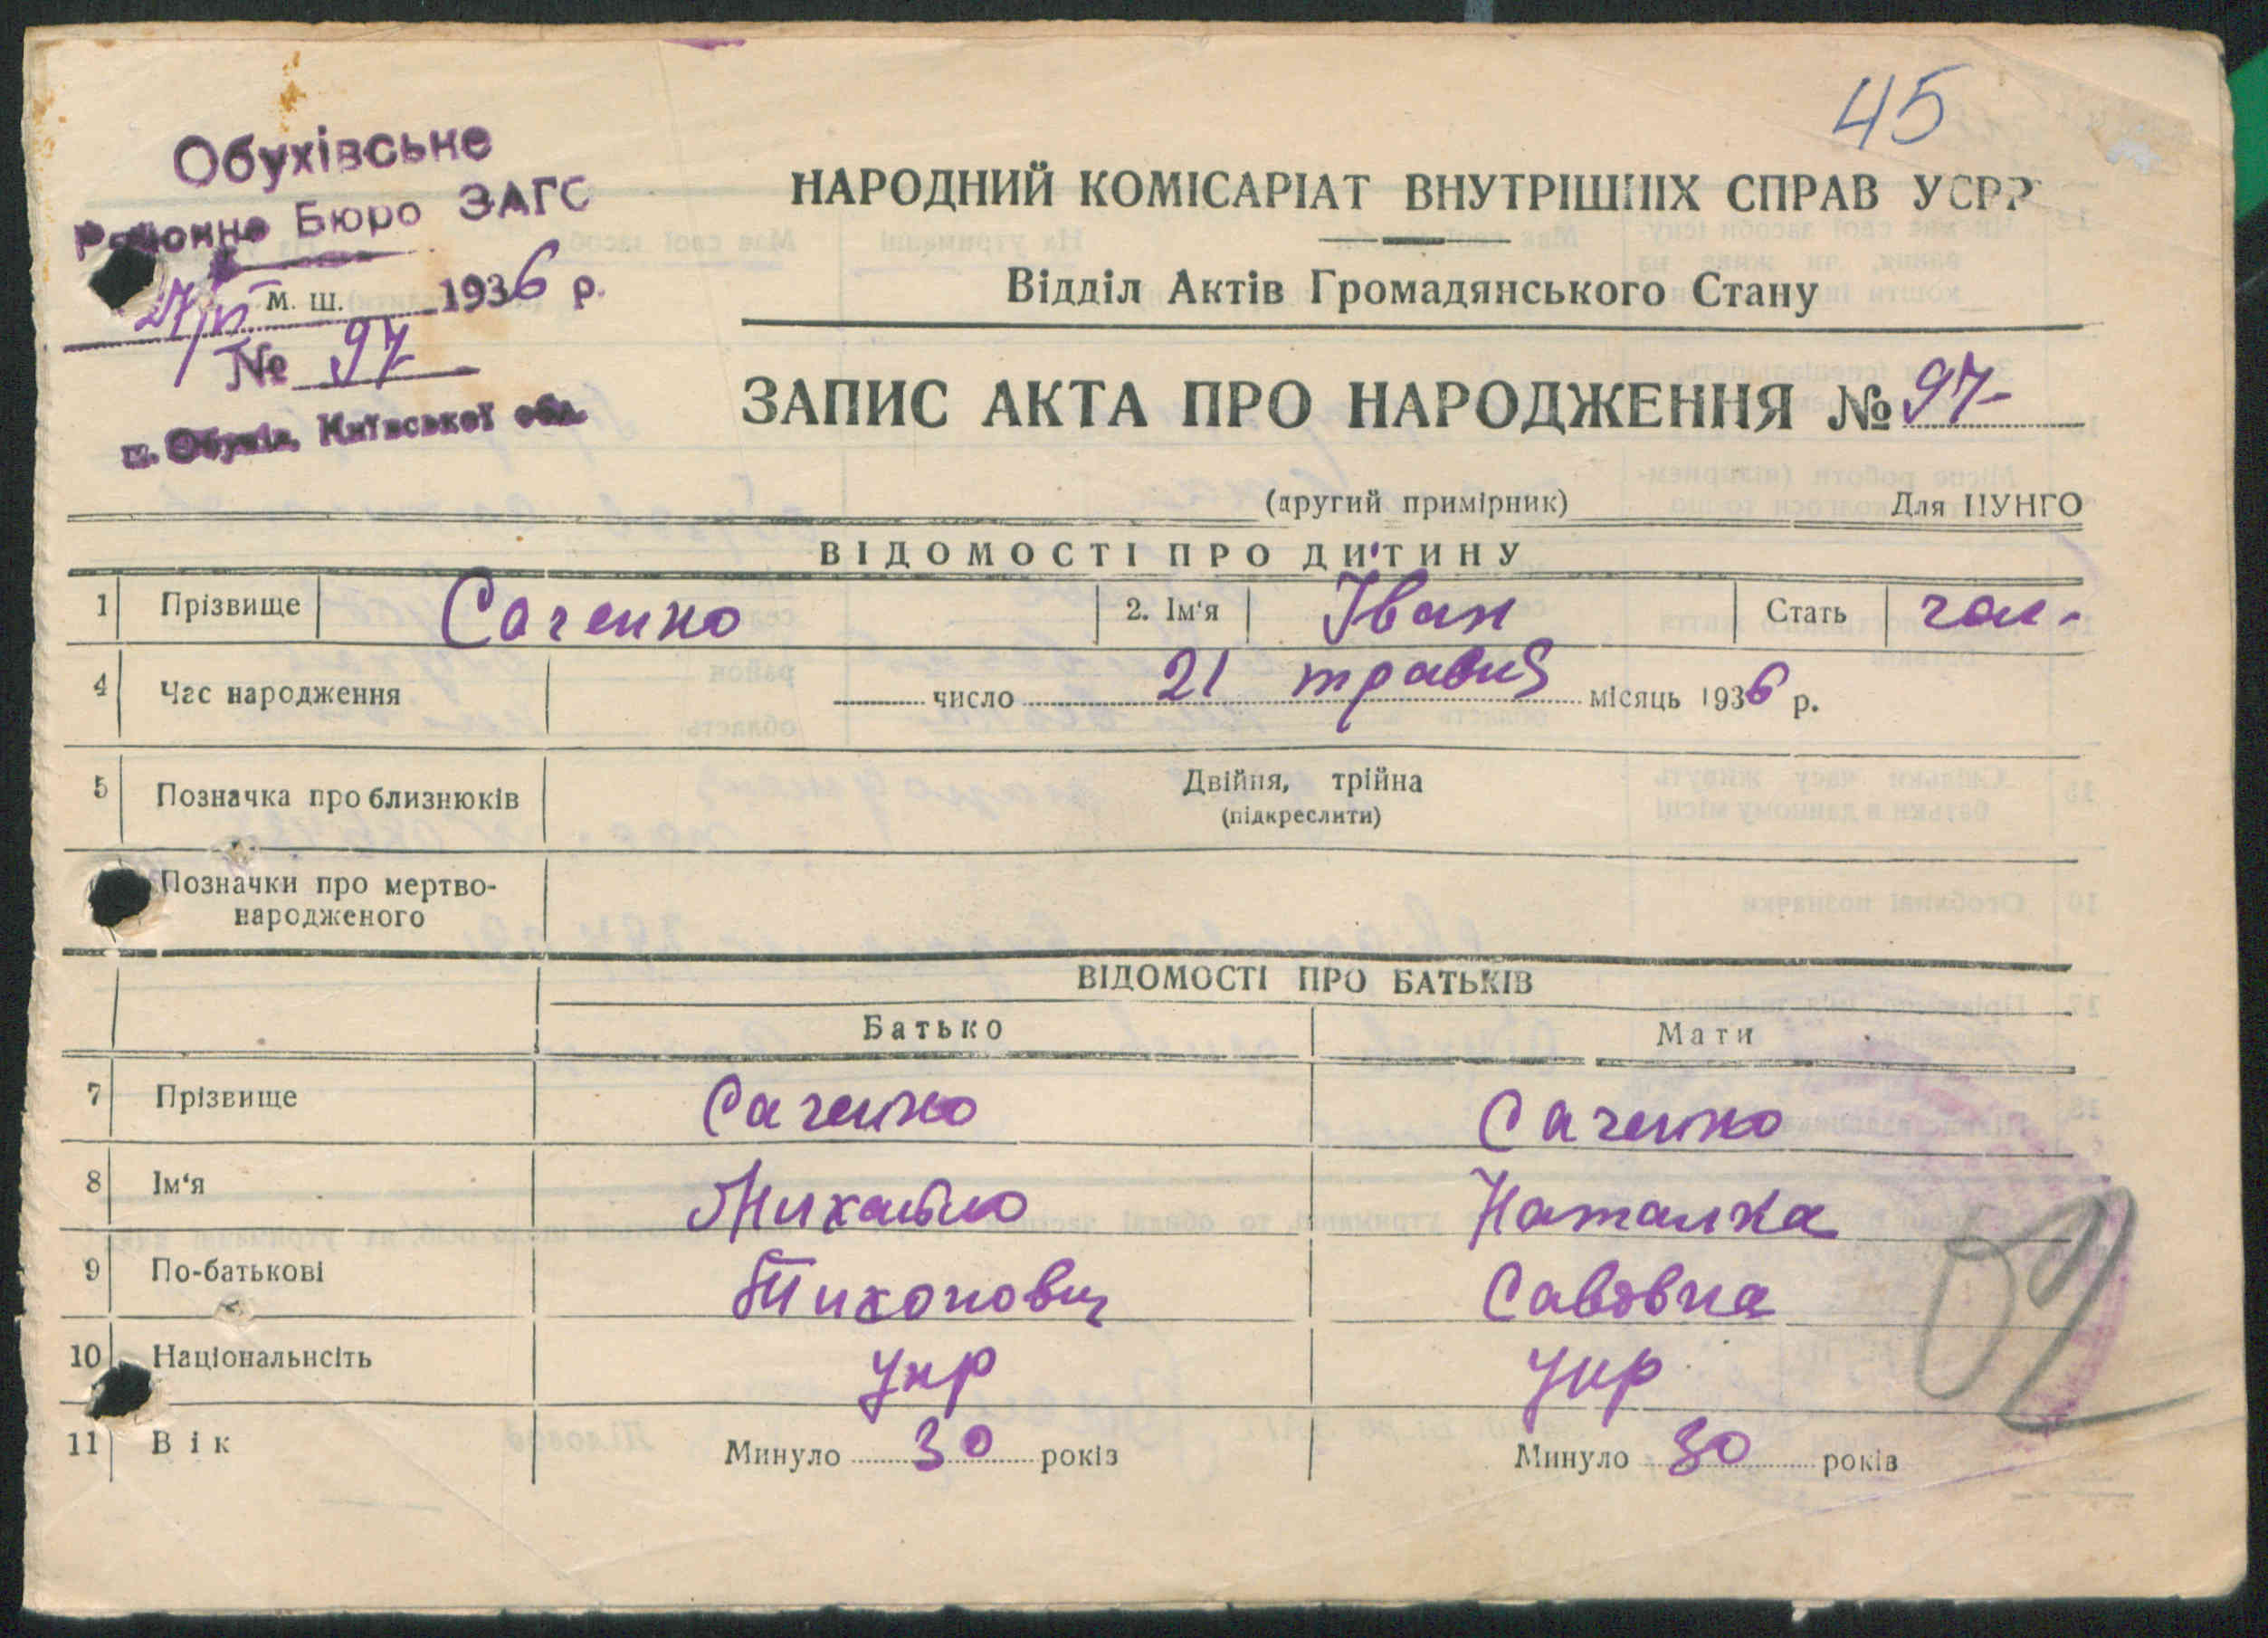 45
Обухівське
Районне Бюро ЗАГС
27/VI м. ш. 1936 р.
№ 97
м. Обухів, Київської обл.
НАРОДНИЙ КОМІСАРІАТ ВНУТРІШНІХ СПРАВ УСРР
Відділ Актів Громадянського Стану
ЗАПИС АКТА ПРО НАРОДЖЕННЯ № 97
(другий примірник) Для ЦУНГО
ВІДОМОСТІ ПРО ДИТИНУ
1 Прізвище Саченко 2. Ім'я Іван Стать чол.
4 Час народження число 21 травня місяць 1936 р.
5 Позначка про близнюків Двійня, трійна
(підкреслити)
Позначки про мертво-
народженого
ВІДОМОСТІ ПРО БАТЬКІВ
Батько Мати
7 Прізвище Саченко Саченко
8 Ім'я Михайло Наталка
9 По-батькові Тихонович Савовна
10 Національнсіть укр укр
11 Вік Минуло 30 років Минуло 30 років
02